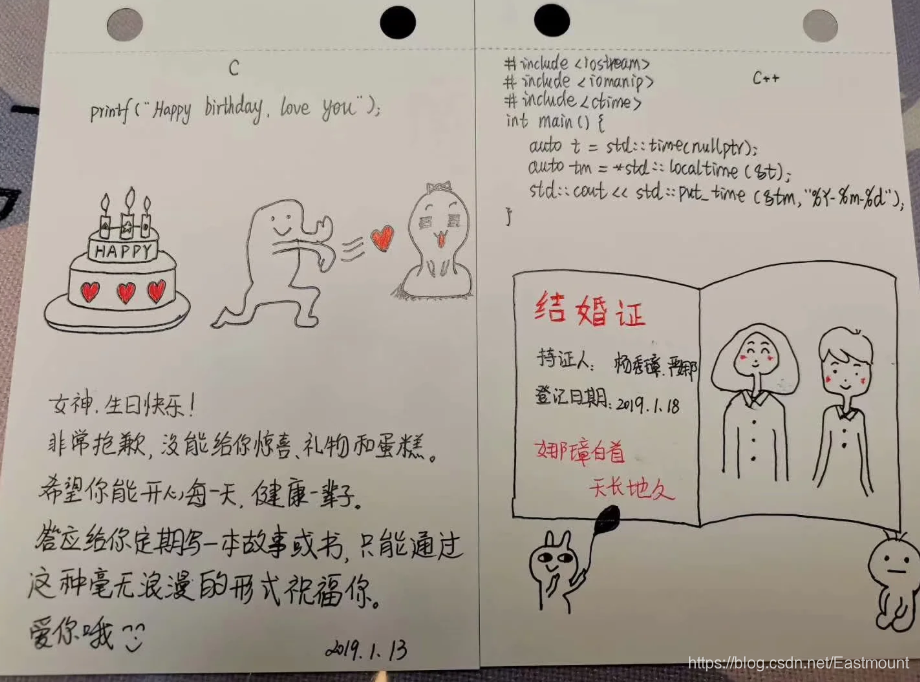 C
printf("Happy birthday, love you");
HAPPY
女神.生日快乐!
非常抱歉,没能给你惊喜、礼物和蛋糕。
希望你能开心每一天,健康一辈子。
答应给你定期写一本故事或书,只能通过
这种毫无浪漫的形式祝福你。
爱你哦
2019.1.13
#include <iostream>
#include <iomanip>
#include <ctime>
C++
int main() {
auto t = std::time(nullptr);
auto tm = *std::localtime(&t);
std::cout << std::put_time(&tm,"%Y-%m-%d");
}
结婚证
持证人: 杨秀璋.严娜
登记日期:2019.1.18
娜璋白首
天长地久
https://blog.csdn.net/Eastmount